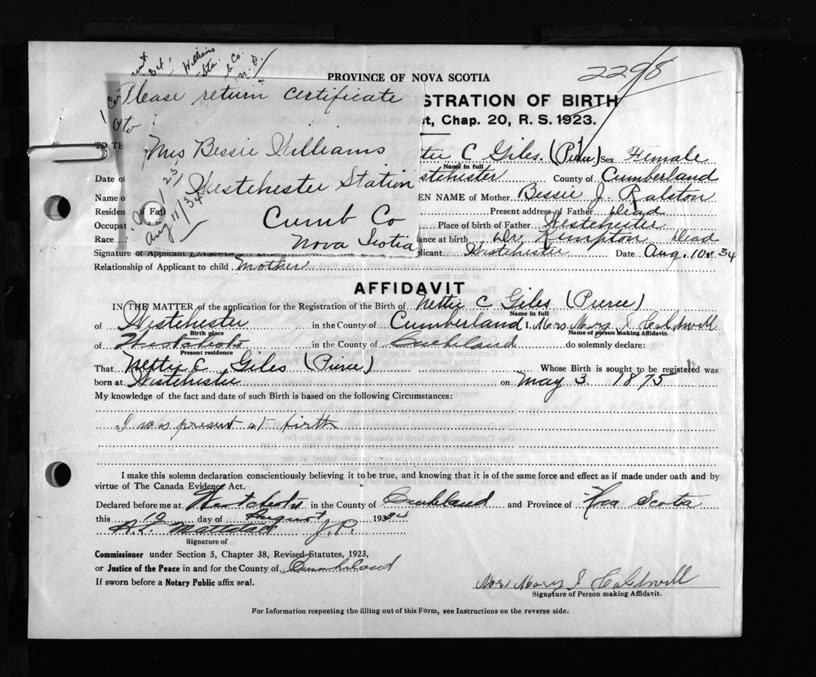 PROVINCE OF NOVA SCOTIA
2298
Please return certificate
to
Mrs Bessie Williams
Westchester Station
Cumb Co
Nova Scotia
Aug 11/34
STRATION OF BIRTH
t, Chap. 20, R. S. 1923.
TO TH
tie C Giles. (Pierce) Sex Female
Name in full
Date of
estchester County of Cumberland
Name o
EN NAME of Mother Bessie J. Ralston
Residen of Fath
Present address of Father Dead
Occupat
Place of birth of Father Westchester
Race
ance at birth Dr. Kempton Dead
Signature of Applicant
licant. Westchester Date Aug. 10 1934
Relationship of Applicant to child Mother
AFFIDAVIT
IN THE MATTER of the application for the Registration of the Birth of Nettie C Giles (Pierce)
Name in full
of Westchester in the County of Cumberland I, Mrs. Mary J. Caldwell
Birth place Name of person making Affidavit.
of Westchester in the County of Cumberland do solemnly declare:
Present residence
That Nettie C Giles (Pierce) Whose Birth is sought to be registered was
born at Westchester on May 3 1875
My knowledge of the fact and date of such Birth is based on the following Circumstances:
I was present at birth
I make this solemn declaration conscientiously believing it to be true, and knowing that it is of the same force and effect as if made under oath and by
virtue of The Canada Evidence Act.
Declared before me at Westchester in the County of Cumberland and Province of Nova Scotia
this 10 day of August 1934
J. P.
Signature of
Commissioner under Section 5, Chapter 38, Revised Statutes, 1923,
or Justice of the Peace in and for the County of Cumberland
If sworn before a Notary Public affix seal.
Mrs Mary J Caldwell
Signature of Person making Affidavit.
For Information respecting the filling out of this Form, see Instructions on the reverse side.